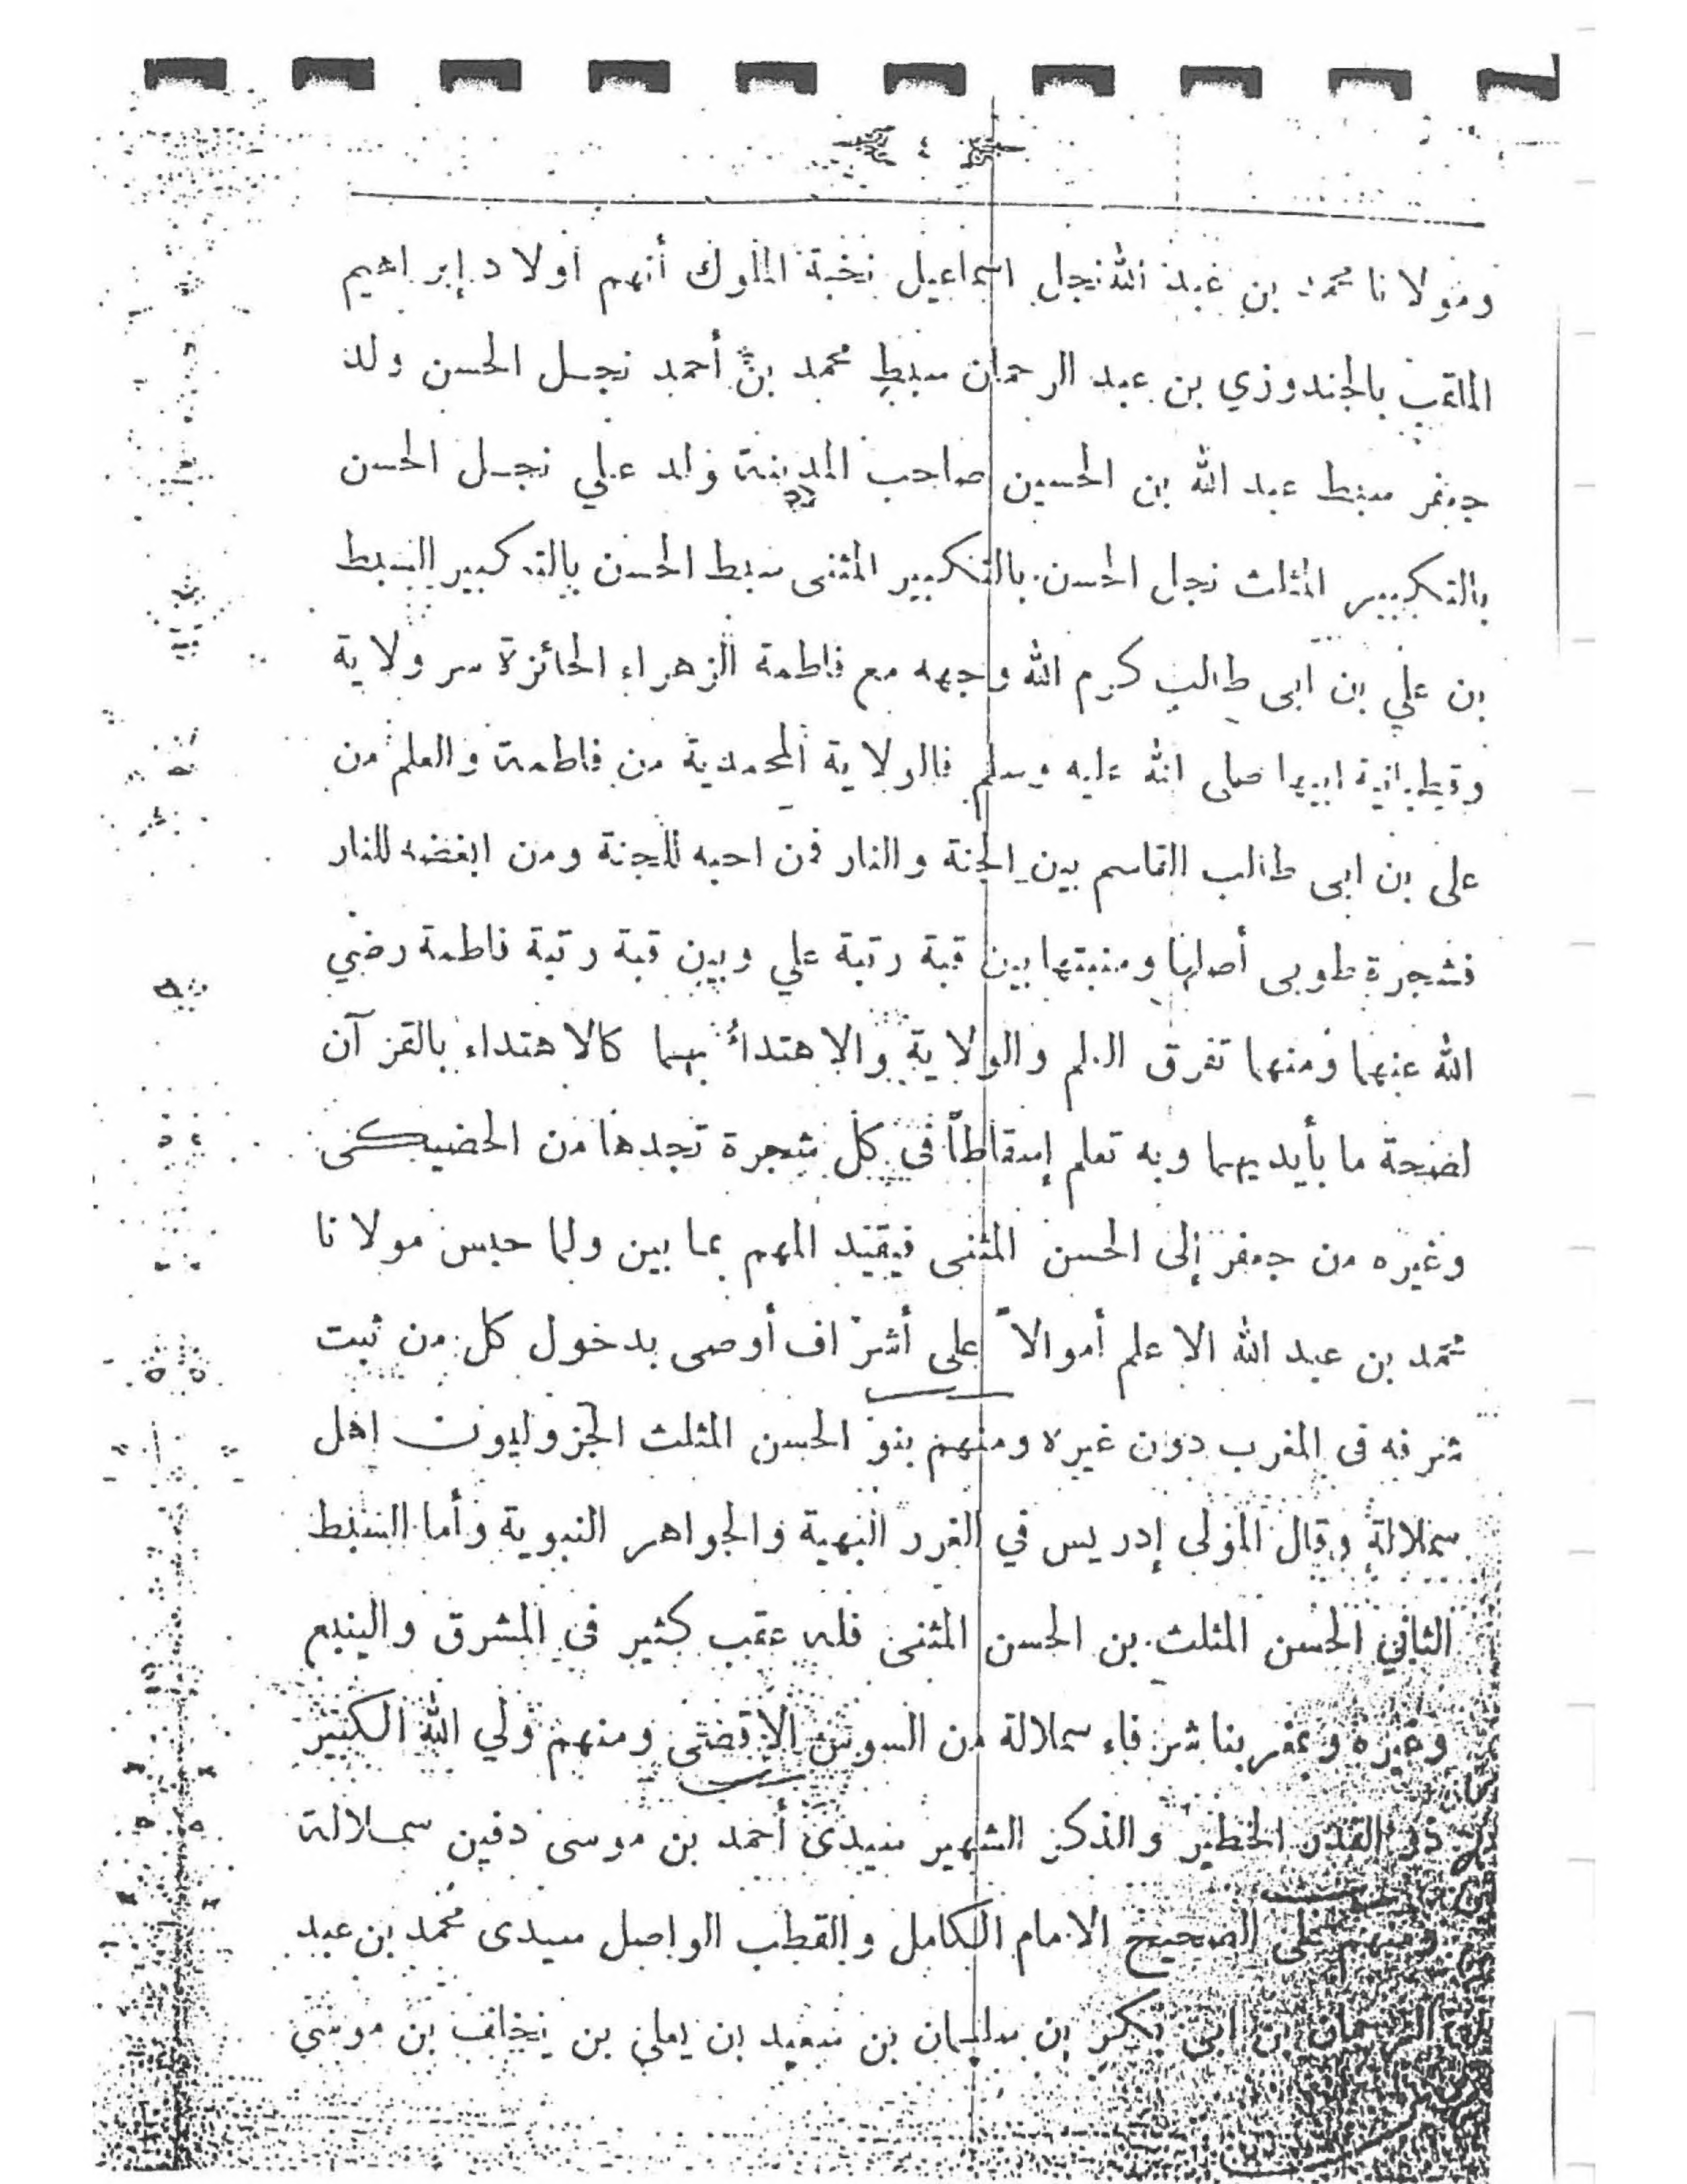 ٤
ومولانا محمد بن عبد الله نجل اسماعيل نخبة الملوك أنهم اولاد إبراهيم
الملقب بالجندوزي بن عبد الرحمان سبط محمد بن أحمد نجل الحسن ولد
جعفر سبط عبد الله بن الحسين صاحب المدينة ولد علي نجل الحسن
بالتكبير المثلث نجل الحسن بالتكبير المثنى سبط الحسن بالتكبير السبط
بن علي بن ابى طالب كرم الله وجهه مع فاطمة الزهراء الحائزة سر ولاية
وقطبانية ابيها صلى الله عليه وسلم فالولاية المحمدية من فاطمة والعلم من
على بن ابى طالب القاسم بين الجنة والنار فمن احبه للجنة ومن ابغضه للنار
فشجرة طوبى أصلها ومنبتها بين قبة رتبة علي وبين قبة رتبة فاطمة رضي
الله عنهما ومنهما تفرق العلم والولاية والاهتداء بهما كالاهتداء بالقرآن
لصحة ما بأيديهما وبه تعلم إسقاطاً فى كل شجرة تجدها من الحضيكى
وغيره من جعفر إلى الحسن المثنى فيقيد المهم بما بين ولما حبس مولانا
محمد بن عبد الله الاعلم أموالاً على أشراف أوصى بدخول كل من ثبت
شرفه فى المغرب دون غيره ومنهم بنو الحسن المثلث الجزوليون اهل
سملالة وقال المولى إدريس في الغرر البهية والجواهر النبوية وأما السبط
الثاني الحسن المثلث بن الحسن المثنى فله عقب كثير فى المشرق والينبع
وغيره وبمغربنا شرفاء سملالة من السوس الاقصى ومنهم ولي الله الكبير
ذو القدر الخطير والذكر الشهير سيدى أحمد بن موسى دفين سملالة
ومنهم على الصحيح الامام الكامل والقطب الواصل سيدى محمد بن عبد
الرحمان بن ابى بكر بن سليمان بن سعيد بن يعلى بن يخلف بن موسى